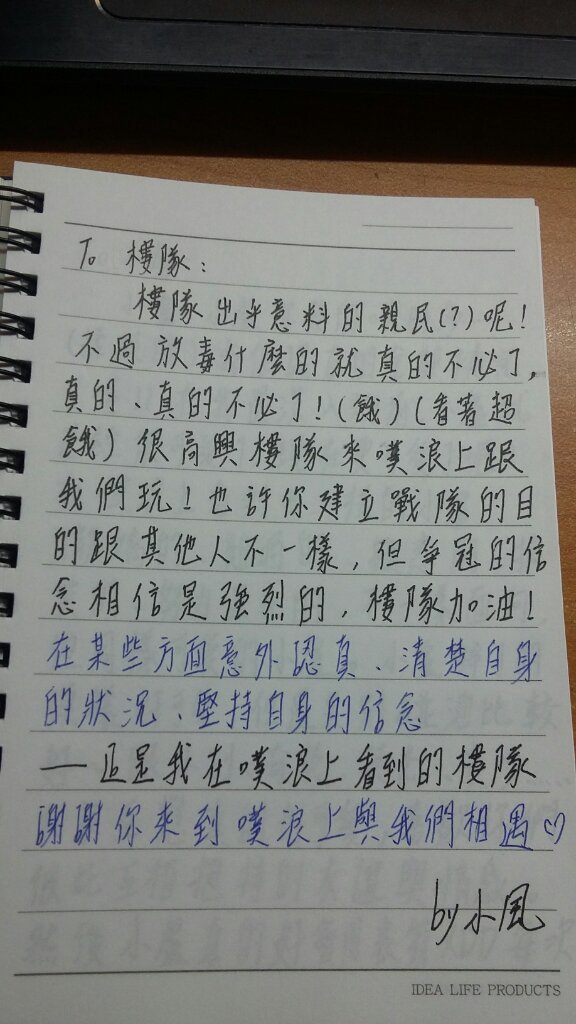 To 樓隊：
樓隊出乎意料的親民(?)呢！
不過放毒什麼的就真的不必了，
真的、真的不必了！(餓)(看著超
餓) 很高興樓隊來噗浪上跟
我們玩！也許你建立戰隊的目
的跟其他人不一樣，但爭冠的信
念相信是強烈的，樓隊加油！
在某些方面意外認真、清楚自身
的狀況、堅持自身的信念
——正是我在噗浪上看到的樓隊
謝謝你來到噗浪上與我們相遇♡
by 小風
IDEA LIFE PRODUCTS